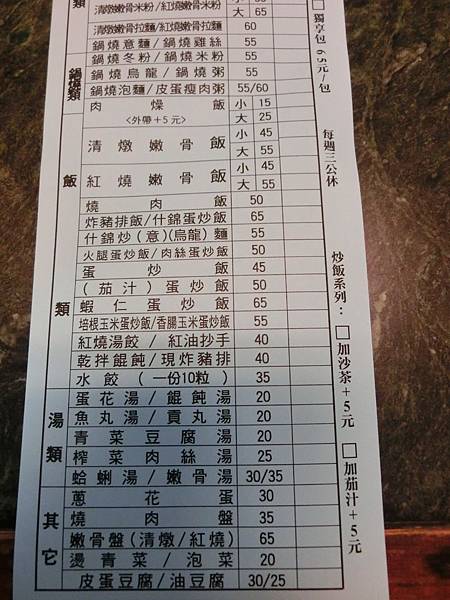 類
清燉嫩骨米粉/紅燒嫩骨米粉 小 55
大 65
清燉嫩骨拉麵/紅燒嫩骨拉麵 60
鍋燒類
鍋燒意麵/鍋燒雞絲 55
鍋燒冬粉/鍋燒米粉 55
鍋燒烏龍/鍋燒粥 55
鍋燒泡麵/皮蛋瘦肉粥 55/60
飯類
肉燥飯 小 15
<外帶+5元> 大 25
清燉嫩骨飯 小 45
大 55
紅燒嫩骨飯 小 45
大 55
燒肉飯 50
炸豬排飯/什錦蛋炒飯 65
什錦炒(意)(烏龍)麵 55
火腿蛋炒飯/肉絲蛋炒飯 50
蛋炒飯 45
(茄汁)蛋炒飯 50
蝦仁蛋炒飯 65
培根玉米蛋炒飯/香腸玉米蛋炒飯 55
紅燒湯餃/紅油抄手 40
乾拌餛飩/現炸豬排 40
水餃(一份10粒) 35
湯類
蛋花湯/餛飩湯 20
魚丸湯/貢丸湯 20
青菜豆腐湯 20
榨菜肉絲湯 25
蛤蜊湯/嫩骨湯 30/35
其它
蔥花蛋 30
燒肉盤 35
嫩骨盤(清燉/紅燒) 65
燙青菜/泡菜 20
皮蛋豆腐/油豆腐 30/25
□獨享包65元/包
每週三公休
炒飯系列:□加沙茶+5元 □加茄汁+5元